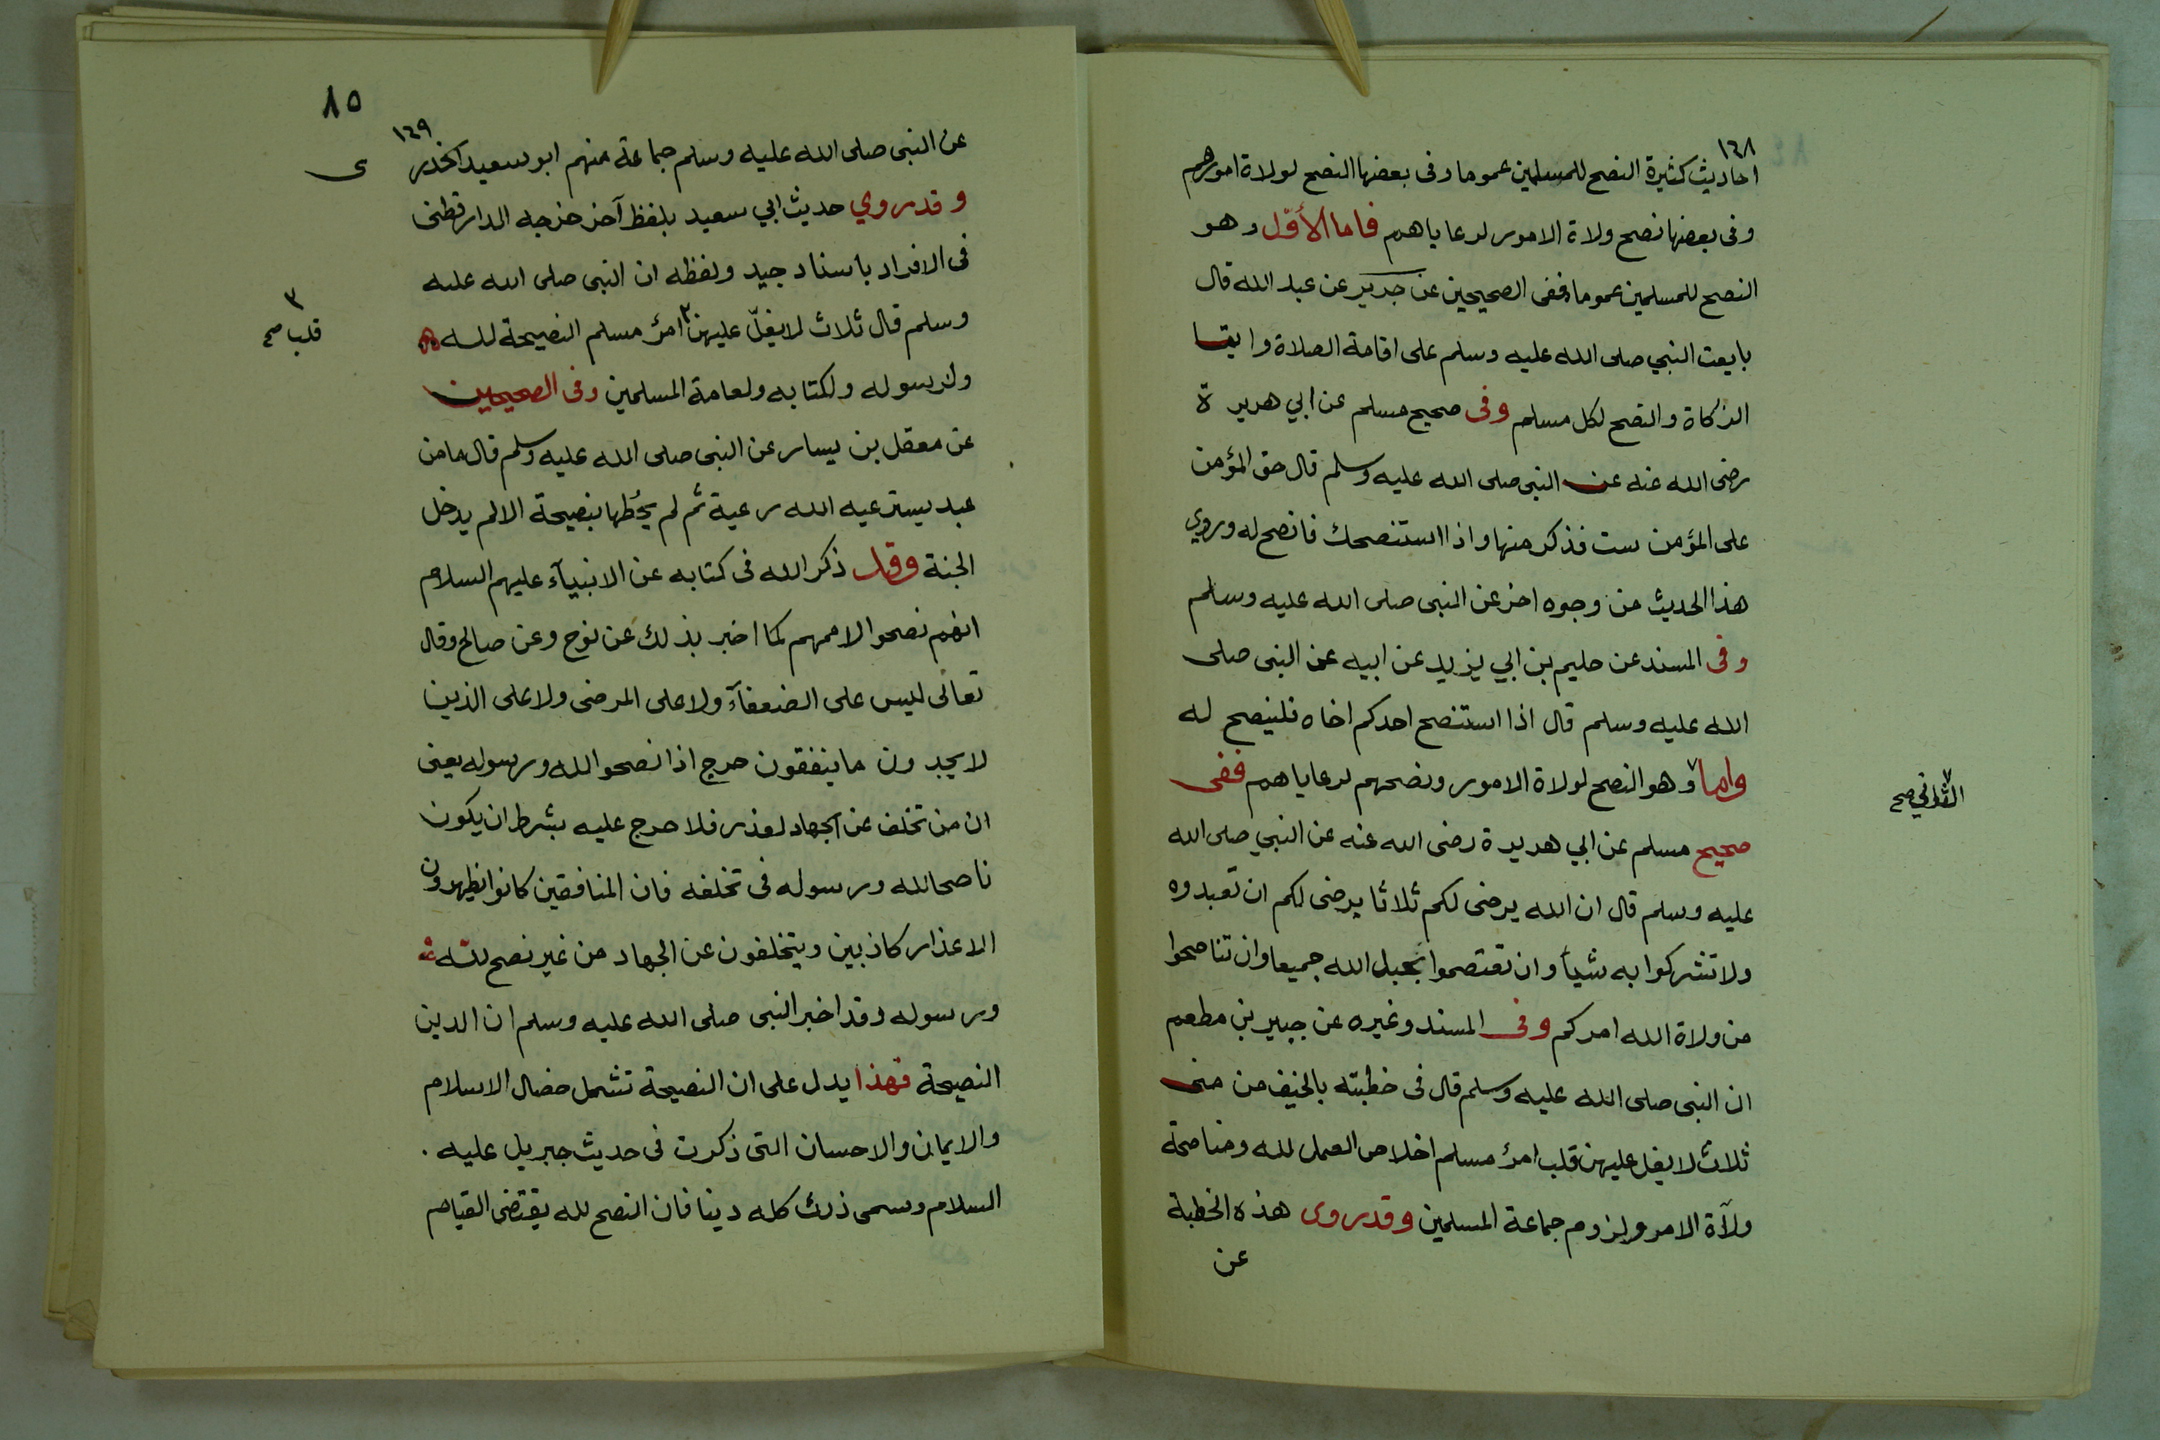 ١٦٨
احاديث كثيرة النصح للمسلمين عموما وفى بعضها النصح لولاة امورهم
وفى بعضها نصح ولاة الامور لرعاياهم فاما الأوّل وهو
النصح للمسلمين عموما ففى الصحيحين عن جرير عن عبد الله قال
بايعت النبي صلى الله عليه وسلم على اقامة الصلاة وايتا
الزكاة والنصح لكل مسلم وفى صحيح مسلم عن ابي هريرة
رضى الله عنه عن النبى صلى الله عليه وسلم قال حق المؤمن
على المؤمن ست فذكر منها واذا استنصحك فانصح له وروي
هذا الحديث من وجوه اخر عن النبى صلى الله عليه وسلم
وفى المسند عن حليم بن ابي يزيد عن ابيه عن النبى صلى
الله عليه وسلم قال اذا استنصح احدكم اخاه فلينصح له
واما وهو النصح لولاة الامور ونصحهم لرعاياهم ففى
الثاني صح
صحيح مسلم عن ابي هريرة رضى الله عنه عن النبي صلى الله
عليه وسلم قال ان الله يرضى لكم ثلاثا يرضى لكم ان تعبدوه
ولا تشركوا به شيأ وان تعتصموا بحبل الله جميعا وان تناصحوا
من ولاة الله امركم وفى المسند وغيره عن جبير بن مطعم
ان النبى صلى الله عليه وسلم قال فى خطبته بالخيف من منى
ثلاث لا يغل عليهن قلب امرئ مسلم اخلاص العمل لله ومناصحة
ولاة الامر ولزوم جماعة المسلمين وقد روى هذه الخطبة
عن
٨٥
١٦٩
عن النبى صلى الله عليه وسلم جماعة منهم ابو سعيد الخدر
ى
وقد روي حديث ابي سعيد بلفظ آخر خرجه الدارقطنى
فى الافراد باسناد جيد ولفظه ان النبى صلى الله عليه
وسلم قال ثلاث لا يغلّ عليهن ٣ امرئ مسلم النصيحة لله
٣
قلب صح
ولرسوله ولكتابه ولعامة المسلمين وفى الصحيحين
عن معقل بن يسار عن النبى صلى الله عليه وسلم قال ما من
عبد يسترعيه الله رعية ثم لم يحُطها بنصيحة الا لم يدخل
الجنة وقد ذكر الله فى كتابه عن الانبيآء عليهم السلام
انهم نصحوا لاممهم كما اخبر بذلك عن نوح وعن صالح وقال
تعالى ليس على الضعفآء ولا على المرضى ولا على الذين
لا يجدون ما ينفقون حرج اذا نصحوا لله ورسوله يعنى
ان من تخلف عن الجهاد لعذر فلا حرج عليه بشرط ان يكون
ناصحا لله ورسوله فى تخلفه فان المنافقين كانوا يظهرون
الاعذار كاذبين ويتخلفون عن الجهاد من غير نصح لله
ورسوله وقد اخبر النبى صلى الله عليه وسلم ان الدين
النصيحة فهذا يدل على ان النصيحة تشمل خصال الاسلام
والايمان والاحسان التى ذكرت فى حديث جبريل عليه .
السلام وسمى ذلك كله دينا فان النصح لله يقتضى القيام